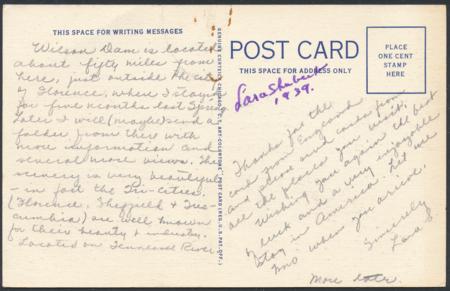 THIS SPACE FOR WRITING MESSAGES
Wilson Dam is located
about fifty miles from
here, just outside the city
of Florence, where I stayed
for five months last Spring.
Later I will (maybe) send a
folder from there with
more information and
several more views. The
scenery is very beautiful
- in fact the Tri-cities.
(Florence, Sheffield & Tus-
cumbia) are well known
for their beauty & industry.
Located on Tennessee River.
GENUINE CURTEICH-CHICAGO "C.T. ART-COLORTONE" POST CARD (REG. U.S. PAT. OFF.)
POST CARD
THIS SPACE FOR ADDRESS ONLY
PLACE
ONE CENT
STAMP
HERE
1939.
Thanks for the
card from England
and please send cards from
all the places you visit.
Wishing you again the best
of luck and a very enjoyable
stay in America. Let me
know when you arrive.
Sincerely
Lara S
More later.